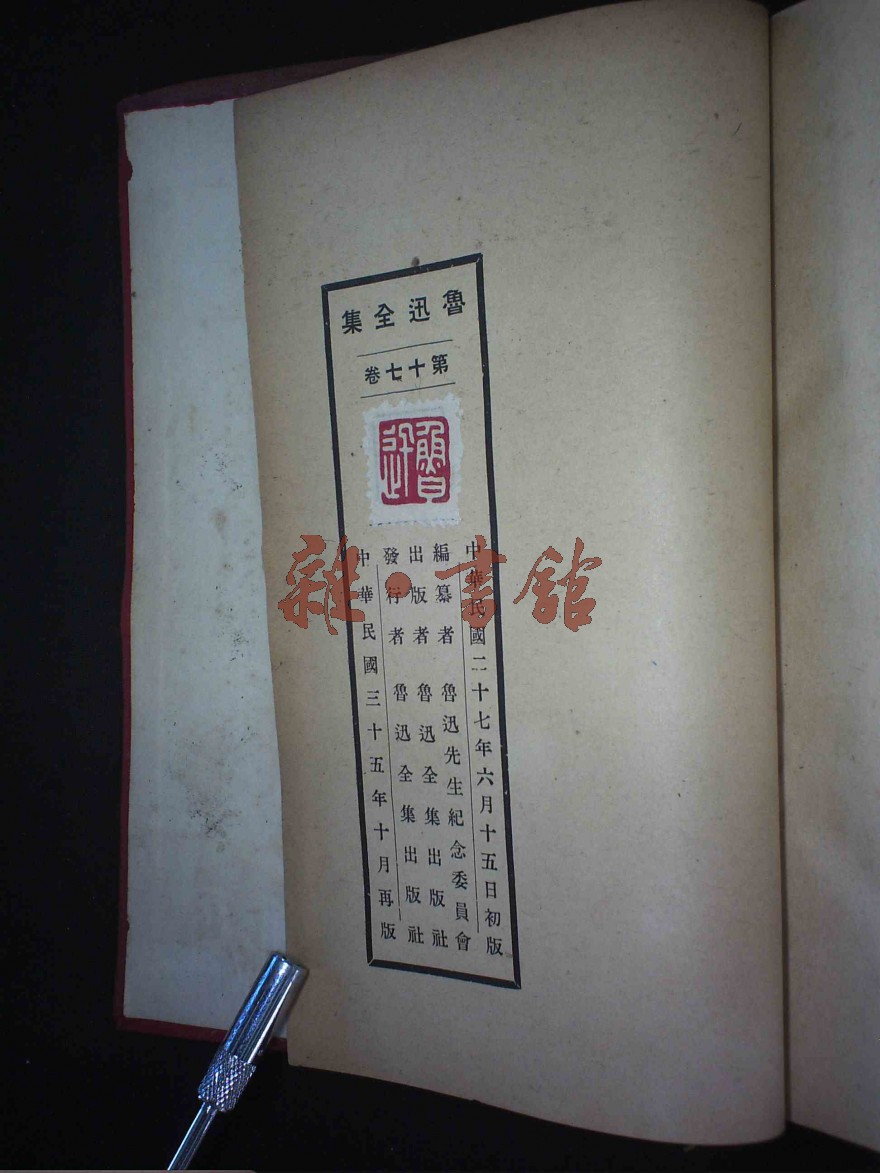 魯迅全集
第十七卷
魯迅
中華民國二十七年六月十五日初版
編纂者 魯迅先生紀念委員會
出版者 魯迅全集出版社
發行者 魯迅全集出版社
中華民國三十五年十月再版
雜·書館